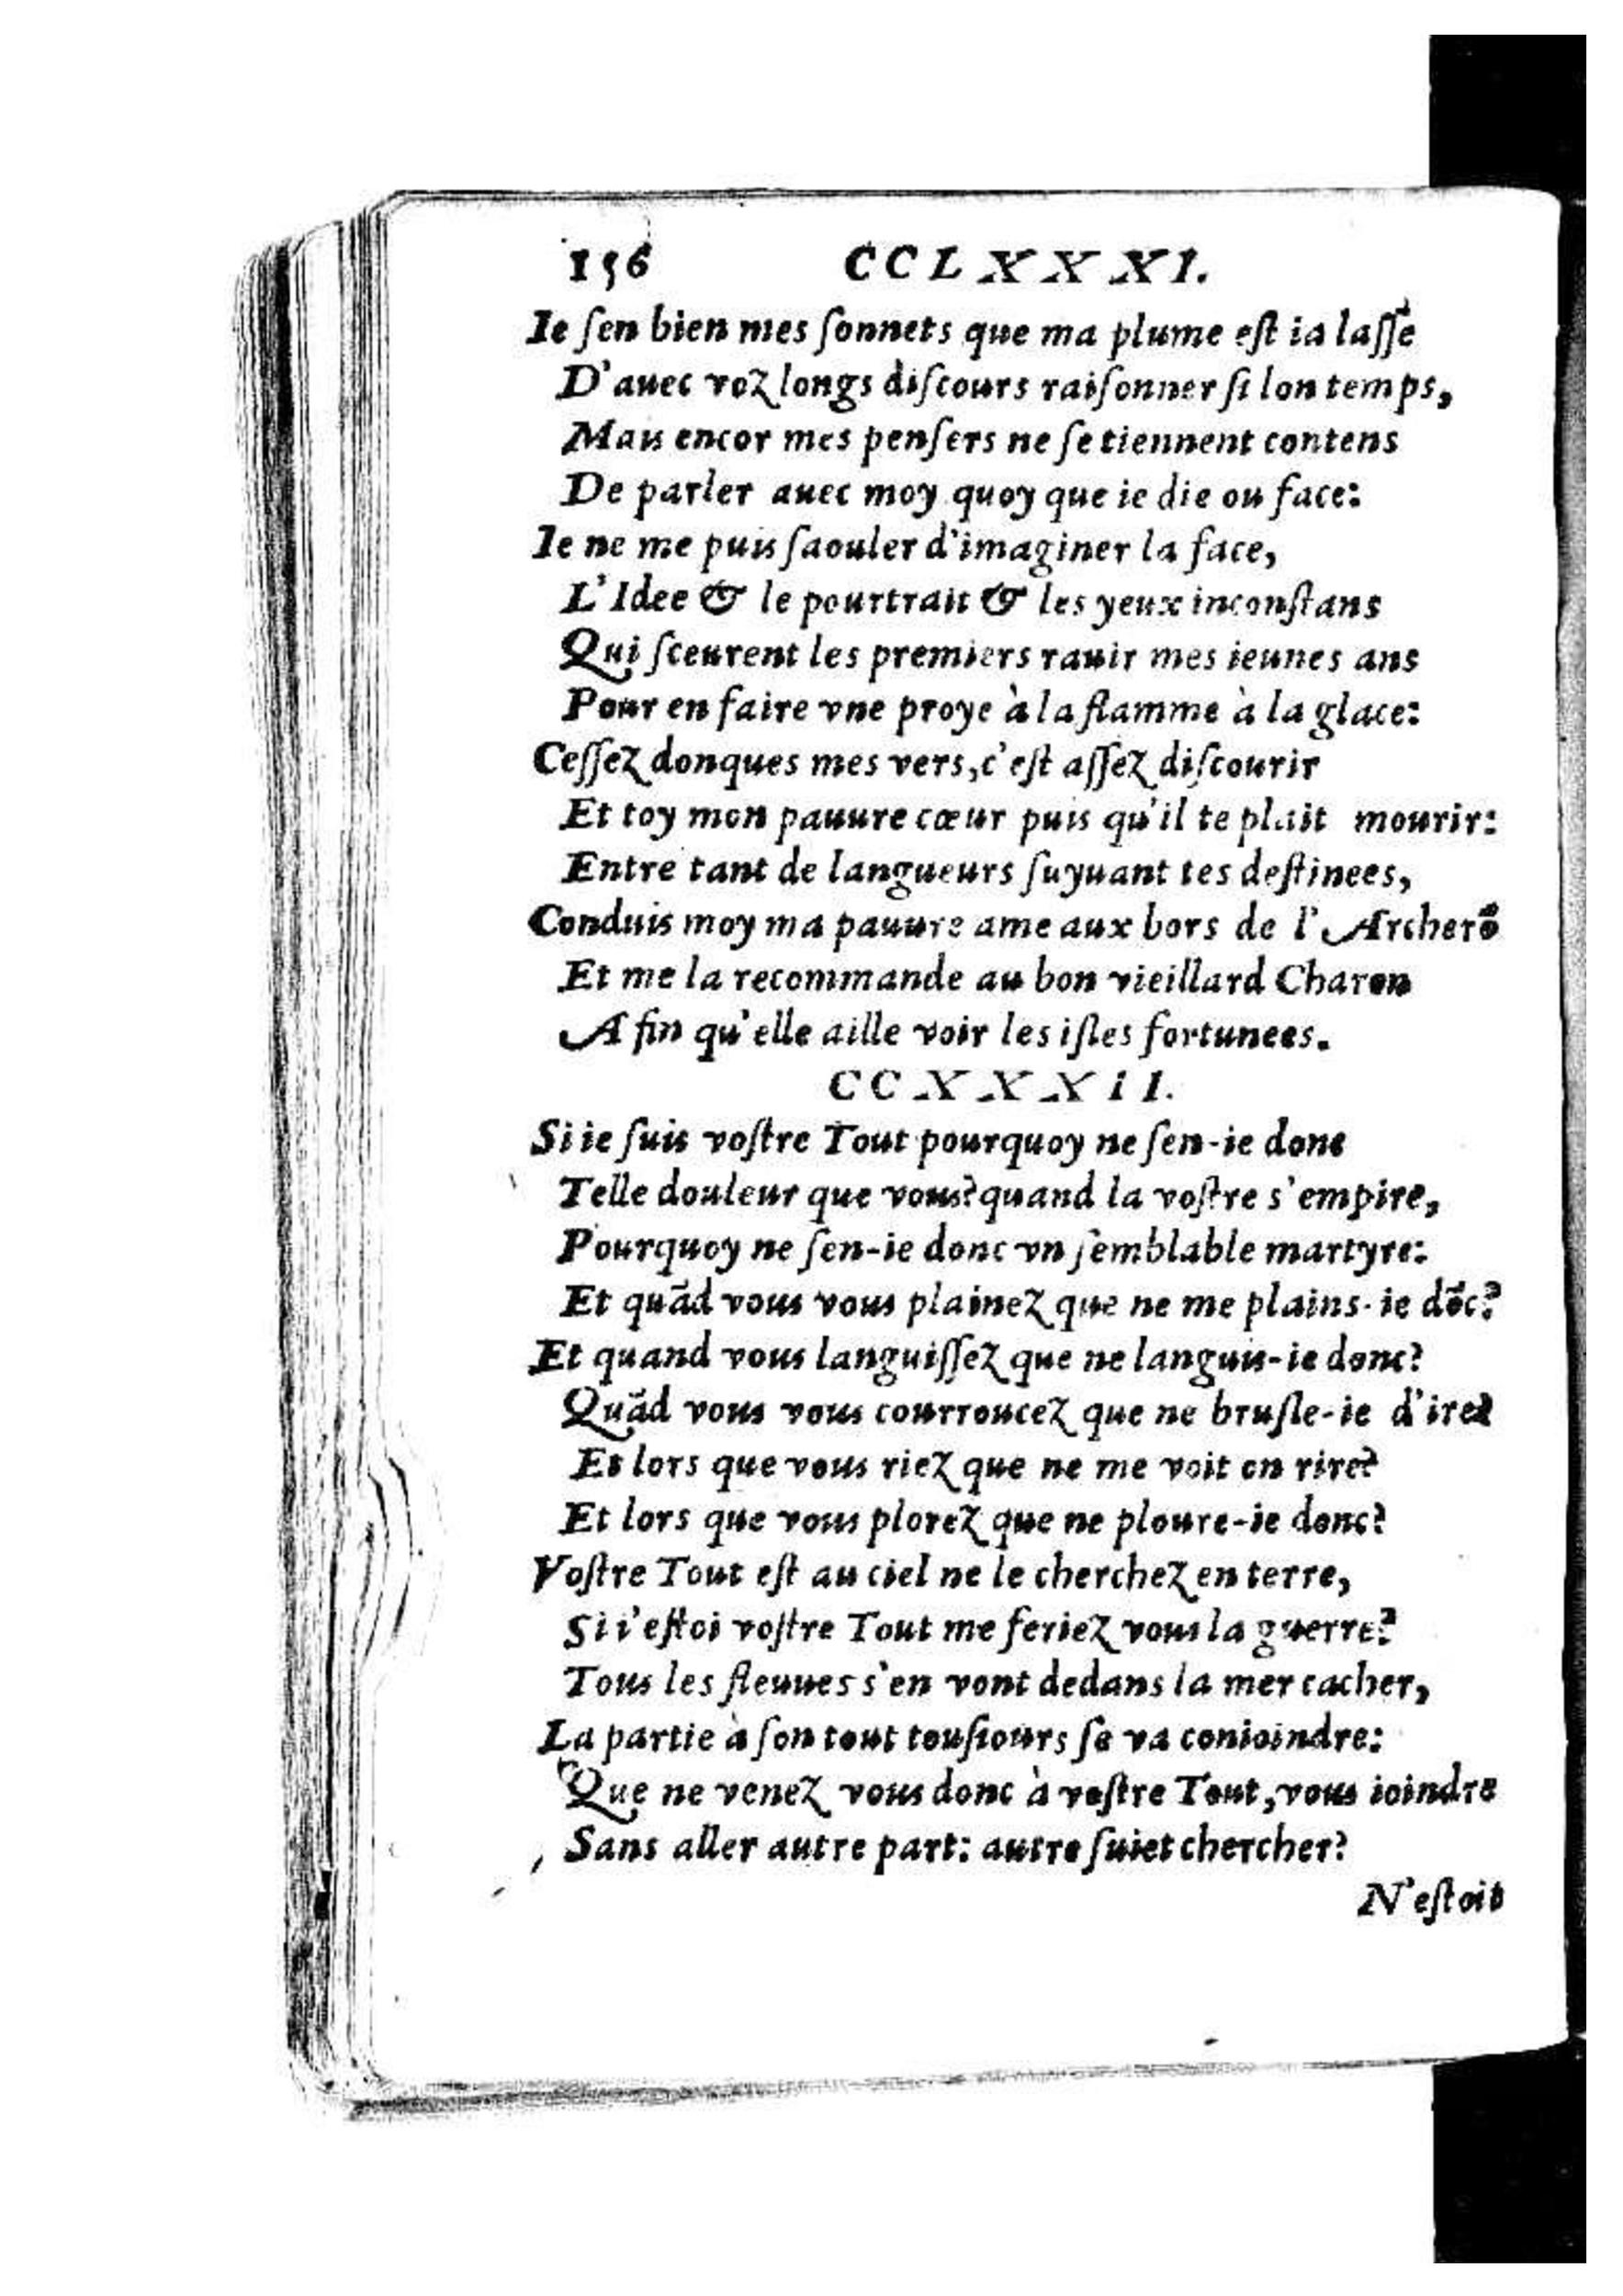 156 CCLXXXI.
Ie ſen bien mes ſonnets que ma plume eſt ia laſſe
D'auec voz longs diſcours raiſonner ſi lon temps,
Mais encor mes penſers ne ſe tiennent contens
De parler auec moy quoy que ie die ou face:
Ie ne me puis ſaouler d'imaginer la face,
L'Idee & le pourtrait & les yeux inconſtans
Qui ſceurent les premiers rauir mes ieunes ans
Pour en faire vne proye à la flamme à la glace:
Ceſſez donques mes vers, c'eſt aſſez diſcourir
Et toy mon pauure cœur puis qu'il te plait mourir:
Entre tant de langueurs ſuyuant tes deſtinees,
Conduis moy ma pauure ame aux bors de l'Archerõ
Et me la recommande au bon vieillard Charon
A fin qu'elle aille voir les iſles fortunees.
CCXXXiI.
Si ie ſuis voſtre Tout pourquoy ne ſen-ie donc
Telle douleur que vous? quand la voſtre s'empire,
Pourquoy ne ſen-ie donc vn ſemblable martyre:
Et quãd vous vous plainez que ne me plains-ie dõc?
Et quand vous languiſſez que ne languis-ie donc?
Quãd vous vous courroucez que ne bruſle-ie d'ire?
Et lors que vous riez que ne me voit on rire?
Et lors que vous plorez que ne ploure-ie donc?
Voſtre Tout eſt au ciel ne le cherchez en terre,
Si i'eſtoi voſtre Tout me feriez vous la guerre?
Tous les fleuues s'en vont dedans la mer cacher,
La partie à ſon tout touſiours ſe va conioindre:
Que ne venez vous donc à voſtre Tout, vous ioindre
Sans aller autre part: autre ſuiet chercher?
N'eſtoit